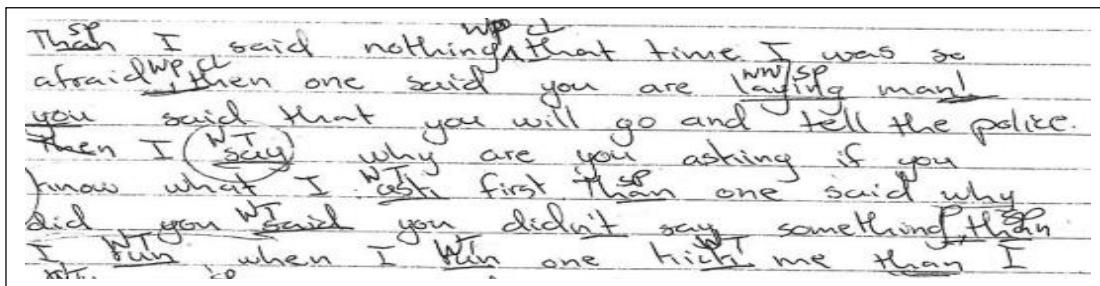 Than I said nothing, that time I was so
afraid, then one said you are laying man!
you said that you will go and tell the police.
Then I say why are you asking if you
know what I ask first than one said why
did you said you didn't say something, than
I run when I run one kick me than I